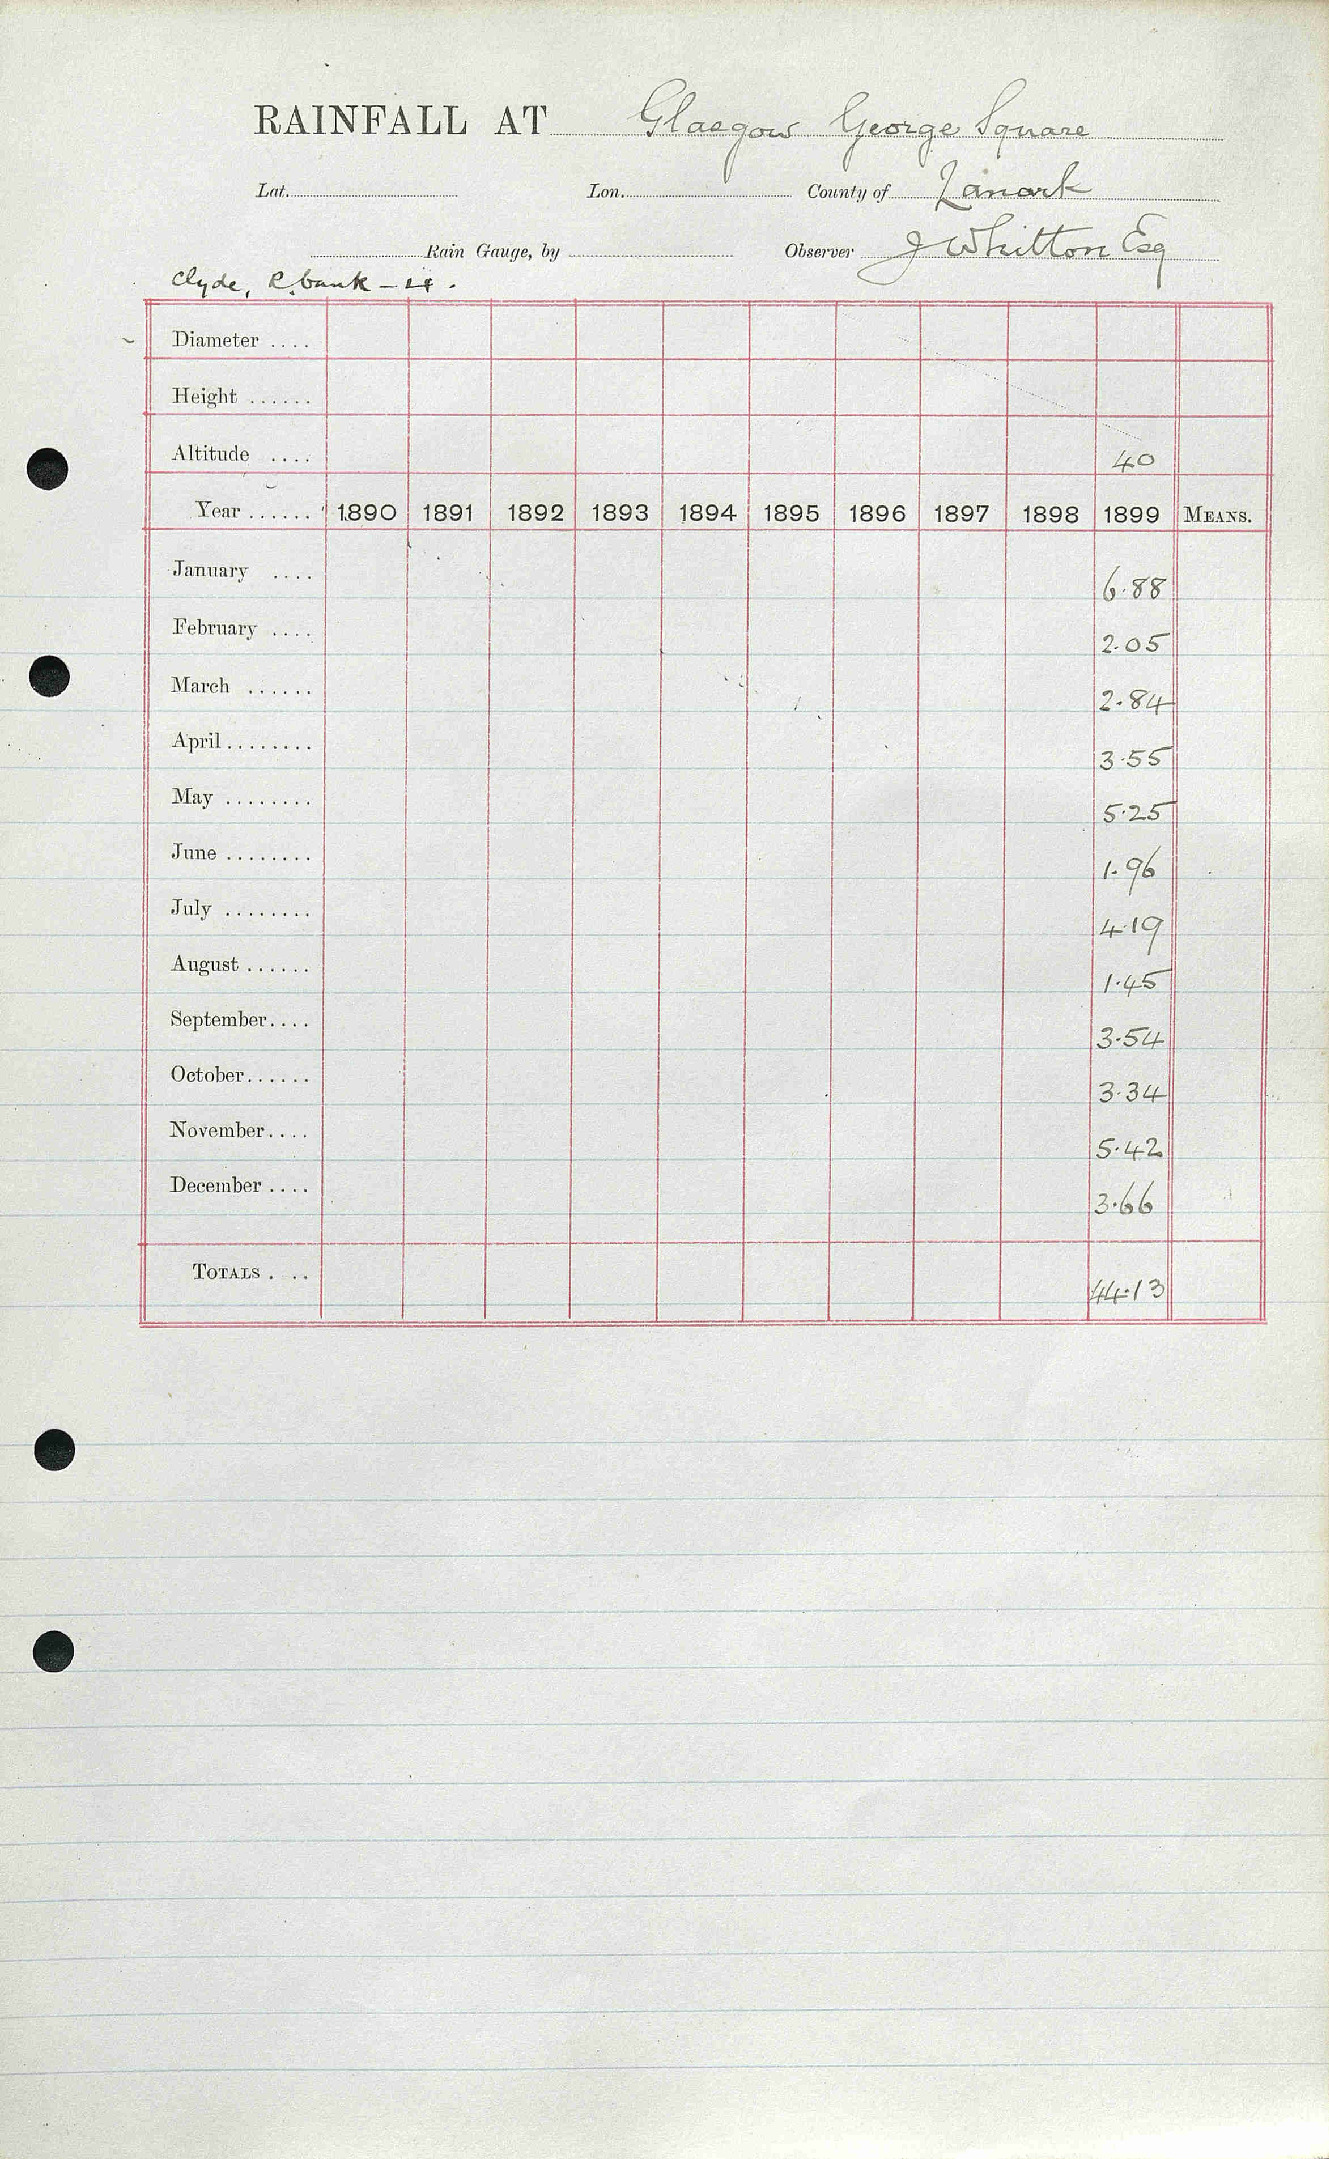 RAINFALL AT Glasgow George Square
Lat. Lon. County of Lanark
Rain Gauge, by Observer J Whitton Esq
Clyde, R. bank
Diameter ....
Height ......
Altitude .... 40
Year ...... 1890 1891 1892 1893 1894 1895 1896 1897 1898 1899 MEANS.
January .... 6.88
February .... 2.05
March ...... 2.84
April ........ 3.55
May ........ 5.25
June ........ 1.96
July ........ 4.19
August ...... 1.45
September.... 3.54
October...... 3.34
November.... 5.42
December .... 3.66
TOTALS . .. 44.13